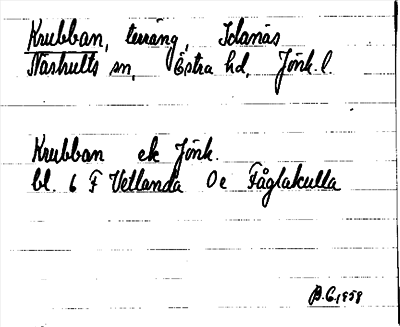 Krubban, terräng, Idanäs
Näshults sn, Östra hd, Jönk. l.
Krubban ek Jönk.
bl. 6 F Vetlanda 0 e Fåglakulla
B.C. 1958